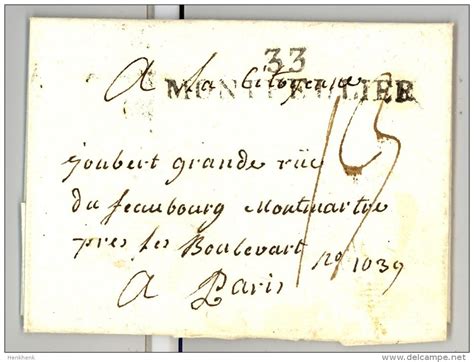 33
MONTPELLIER
A La Citoyenne
joubert grande rüe
du feaubourg Montmartre
pres les Boulevart
No 1039
A Paris
13
Henkhenk
delcampe.net